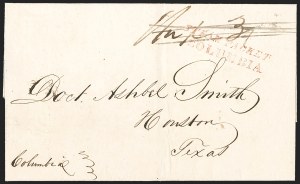 COLUMBIA
Doct. Ashbel Smith
Houston
Texas
Columbia